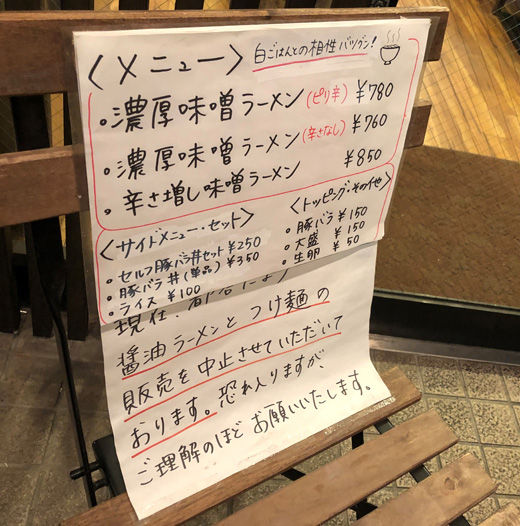 〈メニュー〉
白ごはんとの相性バツグン!
。濃厚味噌ラーメン(ピリ辛) ¥780
。濃厚味噌ラーメン(辛さなし) ¥760
。辛さ増し味噌ラーメン ¥850
〈サイドメニュー・セット〉
・セルフ豚バラ丼セット ¥250
・豚バラ丼(単品) ¥350
・ライス ¥100
〈トッピング・その他〉
・豚バラ ¥150
・大盛 ¥150
・生卵 ¥50
現在、
醤油ラーメンとつけ麺の
販売を中止させていただいて
おります。恐れ入りますが、
ご理解のほどお願いいたします。